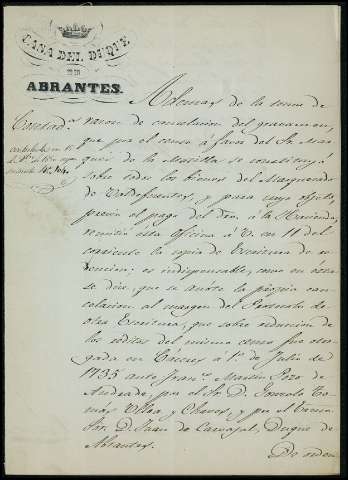 CASA DEL DUQUE
DE
ABRANTES.
Contad.ª
Ademas de la toma de
razon de cancelacion del gravamen,
que por el censo á favor del Sr. Mar-
ques de la se constituyó
sobre todos los bienes del Marquesado
de Valdefuentes, y para cuyo objeto,
previo el pago del dro. á la Hacienda,
remitió esta oficina á V. en 11 del
corriente la copia de Escritura de re-
dencion; es indispensable, como en ésta
se dice, que se anote la propia can-
celacion al margen del Protocolo de
otra Escritura, que sobre reduccion de
los réditos del mismo censo fue otor-
gada en Cáceres á 1.º de Julio de
1735 ante Fran.co Martin Pozo de
Andrade, por el Sr. D. Gonzalo To-
más Ulloa y Chaves, y por el Excmo.
Sor. D. Juan de Carvajal, Duque de
Abrantes.
De orden